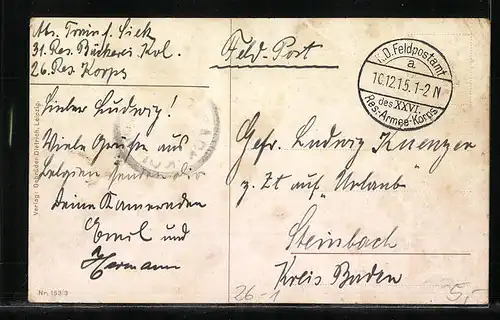 Abs. Train f. Siek
31. Res. Bäckerei Kol.
26. Res. Korps
Feld-Post
K.D. Feldpostamt
a
10.12.15. 1-2 N
des XXVI.
Res.-Armee-Korps
Lieber Ludwig!
Viele Grüße aus
Belgien senden dir
Deine Kameraden
Emil und
Hermann
Gefr. Ludwig Kuenzer
z. Zt auf "Urlaub"
Steinbach
Kreis Baden
Verlag: Gebrüder Dietrich, Leipzig.
Nr. 153/3
26-1
5,-